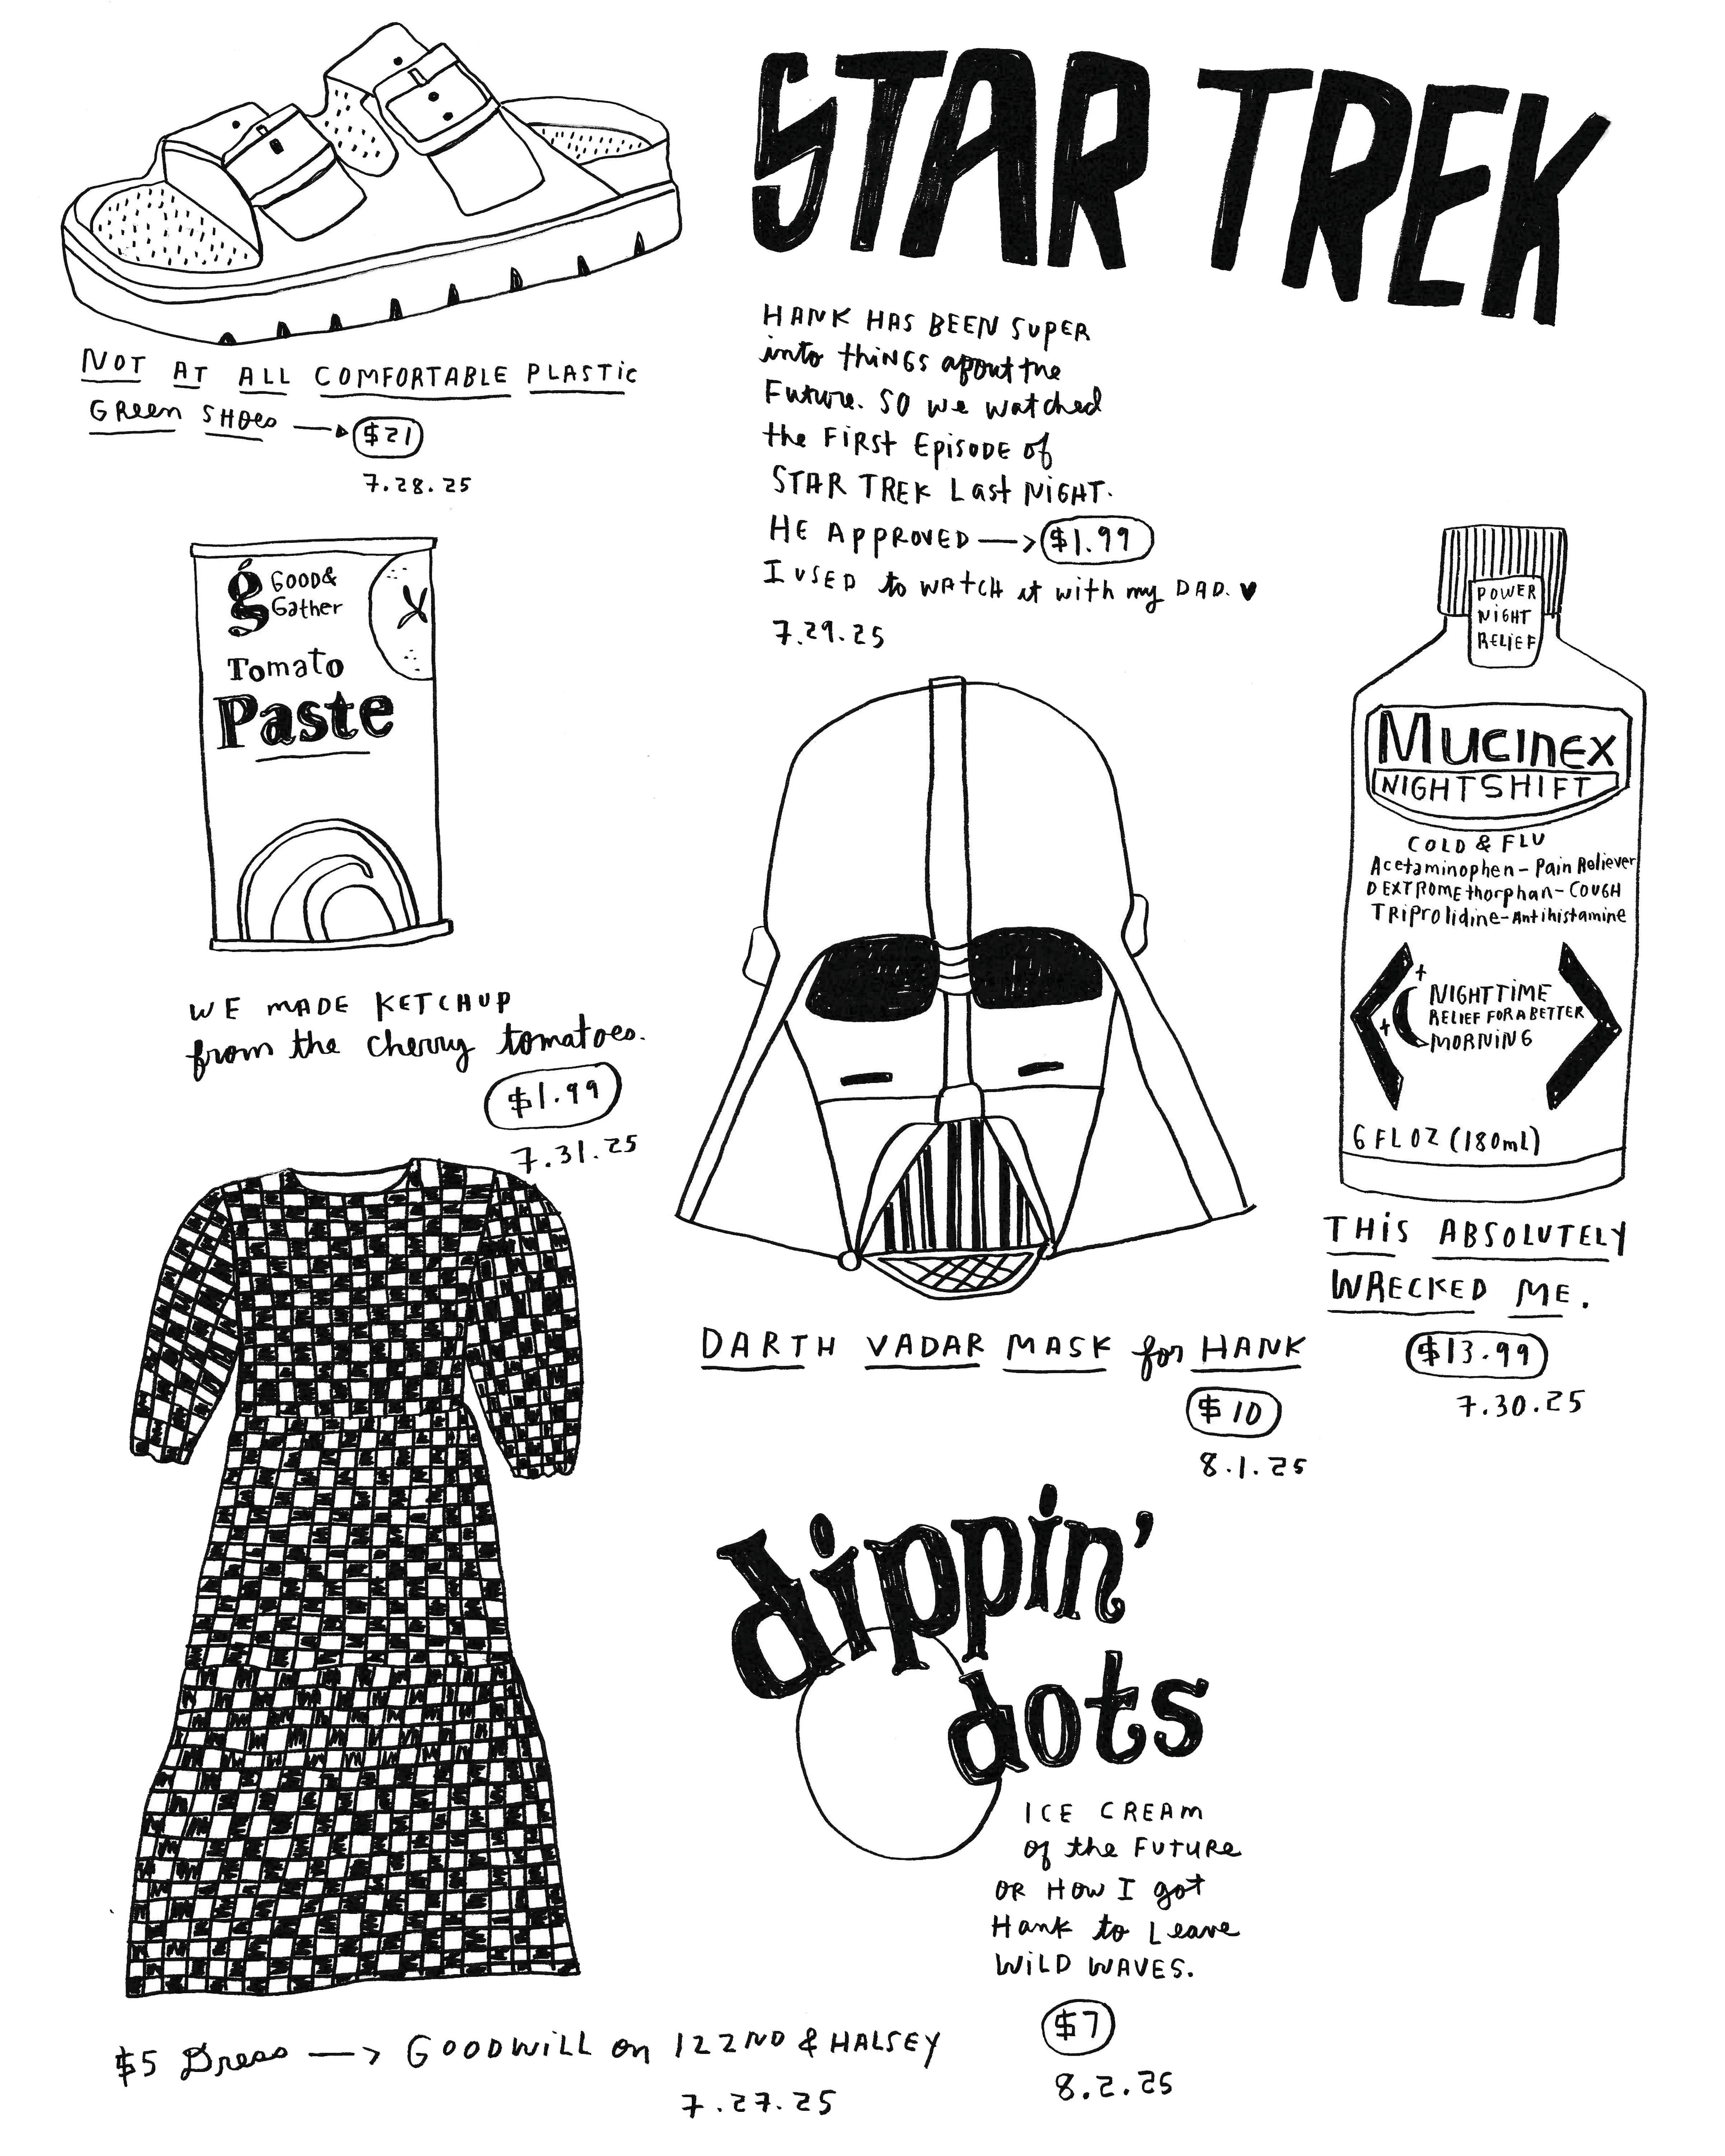 NOT AT ALL COMFORTABLE PLASTIC
GREEN SHOES → $21
7.28.25
STAR TREK
HANK HAS BEEN SUPER
into tHiNGS about the
Future. SO we watched
the FiRSt EpiSODE of
STAR TREK Last NIGHT.
HE APPROVED → $1.99
I USED to WATCH it with my DAD. ♥
7.29.25
g GOOD&
Gather
Tomato
Paste
WE MADE KETCHUP
from the cherry tomatoes.
$1.99
7.31.25
POWER
NIGHT
RELIEF
Mucinex
NIGHTSHIFT
COLD & FLU
Acetaminophen - Pain Reliever
DEXTROMEthorphan - COUGH
TRiprolidine - Antihistamine
NIGHTTIME
RELIEF FOR A BETTER
MORNING
6 FL OZ (180mL)
THIS ABSOLUTELY
WRECKED ME.
$13.99
7.30.25
DARTH VADAR MASK for HANK
$10
8.1.25
dippin'
dots
ICE CREAM
of the FUTURE
OR HOW I got
Hank to Leave
WiLD WAVES.
$7
8.2.25
$5 Dress → GOODWiLL on 122ND & HALSEY
7.27.25